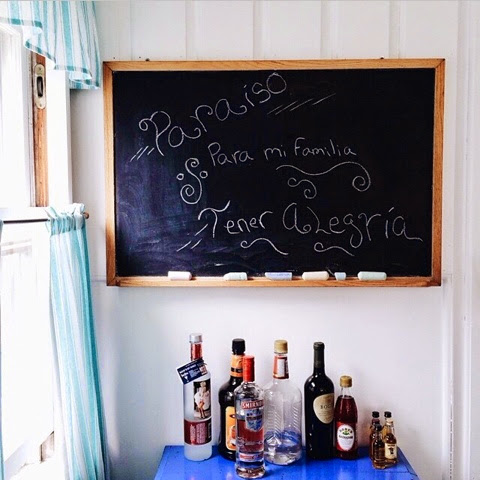 Paraiso
Para mi familia
Tener Alegría
SMIRNOFF